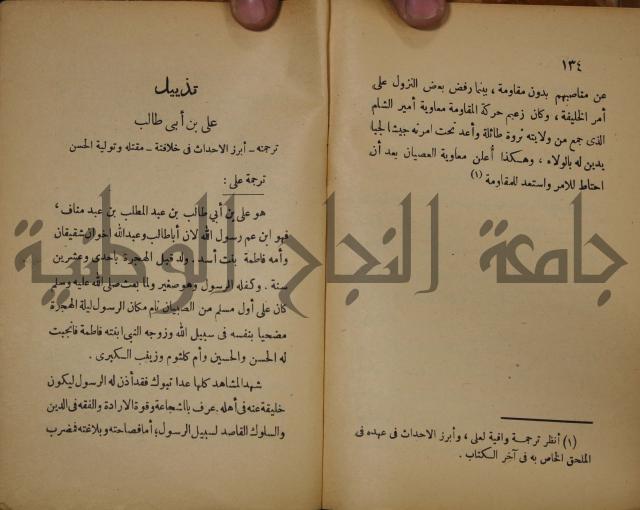 ١٣٤
عن مناصبهم بدون مقاومة ، بينما رفض بعض النزول على
أمر الخليفة ، وكان زعيم حركة المقاومة معاوية أمير الشام
الذى جمع من ولايته ثروة طائلة وأعد تحت امرته جيشا
يدين له بالولاء ، وهكذا أعلن معاوية العصيان بعد أن
احتاط للامر واستعد للمقاومة (١)
(١) أنظر ترجمة وافية لعلى ، وأبرز الاحداث فى عهده فى
الملحق الخاص به فى آخر الكتاب .
تذييل
على بن أبى طالب
ترجمته ـ أبرز الاحداث فى خلافته ـ مقتله وتولية الحسن
ترجمة على :
هو على بن أبي طالب بن عبد المطلب بن عبد مناف ،
فهو ابن عم رسول الله لان أباطالب وعبدالله اخوان شقيقان
وأمه فاطمة بنت أسد . ولد قبل الهجرة باحدى وعشرين
سنة . وكفله الرسول وهو صغير ولما بعث صلى الله عليه وسلم
كان على أول مسلم من الصبيان نام مكان الرسول ليلة الهجرة
مضحيا بنفسه فى سبيل الله وزوجه النبى ابنته فاطمة فانجبت
له الحسن والحسين وأم كلثوم وزينب الكبرى .
شهد المشاهد كلها عدا تبوك فقد أذن له الرسول ليكون
خليفة عنه فى أهله . عرف بالشجاعة وقوة الارادة والفقه فى الدين
والسلوك القاصد لسبيل الرسول ؛ أما فصاحته وبلاغته فمضرب
جامعة النجاح الوطنية